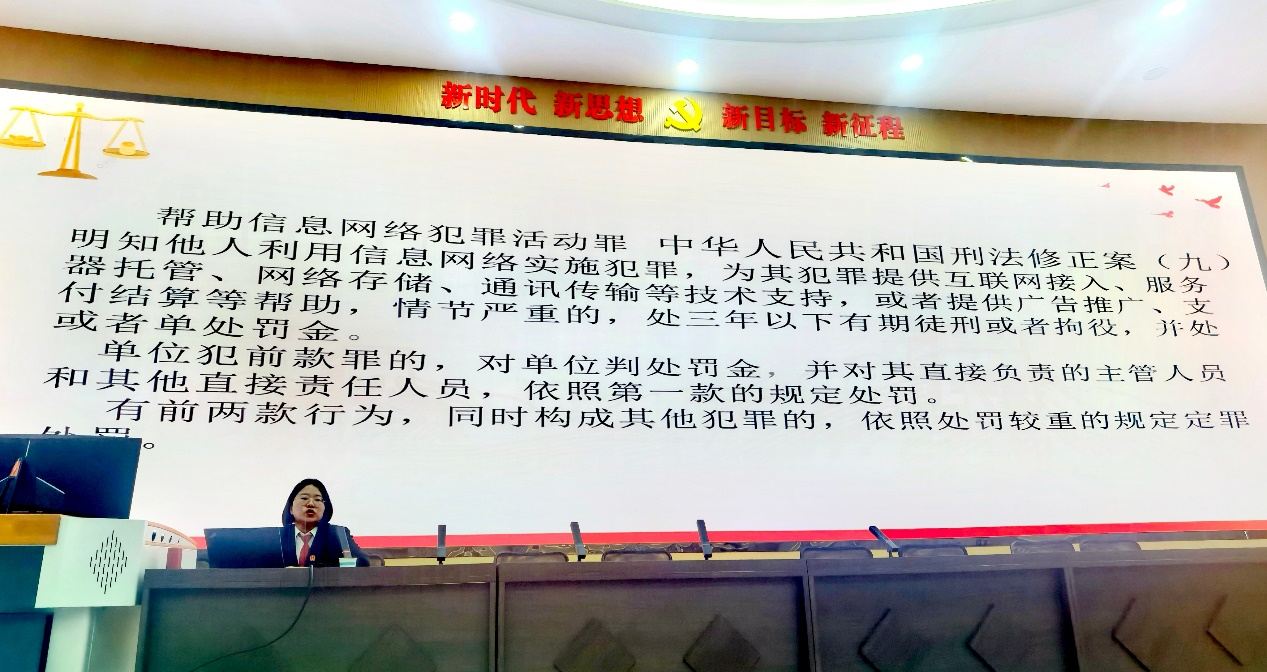 新时代 新思想 新目标 新征程
帮助信息网络犯罪活动罪 中华人民共和国刑法修正案（九）
明知他人利用信息网络实施犯罪，为其犯罪提供互联网接入、服务
器托管、网络存储、通讯传输等技术支持，或者提供广告推广、支
付结算等帮助，情节严重的，处三年以下有期徒刑或者拘役，并处
或者单处罚金。
单位犯前款罪的，对单位判处罚金，并对其直接负责的主管人员
和其他直接责任人员，依照第一款的规定处罚。
有前两款行为，同时构成其他犯罪的，依照处罚较重的规定定罪
处罚。